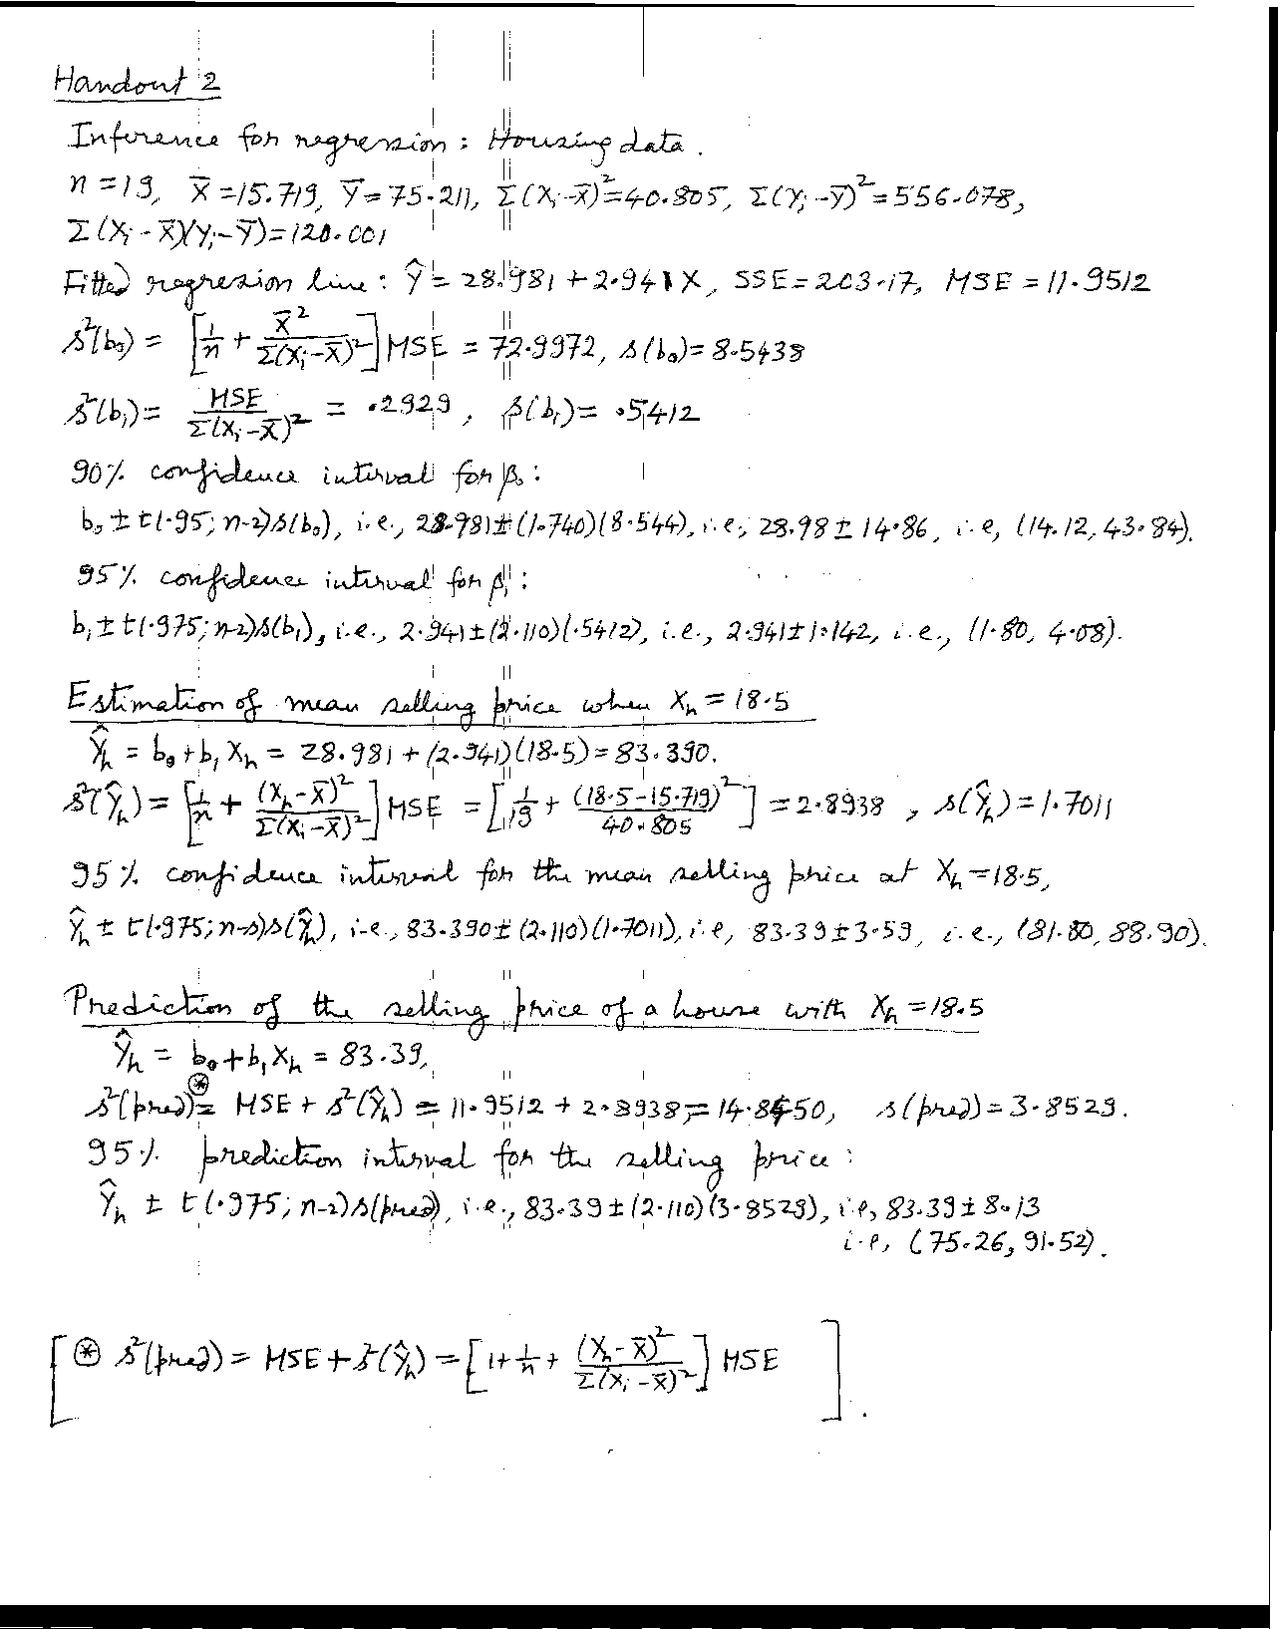 Handout 2
Inference for regression : Housing data.
n = 19, X̄ = 15.719, Ȳ = 75.211, Σ(Xᵢ - X̄)² = 40.805, Σ(Yᵢ - Ȳ)² = 556.078,
Σ(Xᵢ - X̄)(Yᵢ - Ȳ) = 120.001
Fitted regression line : Ŷ = 28.981 + 2.941 X, SSE = 203.17, MSE = 11.9512
s²(b₀) = [1/n + X̄²/Σ(Xᵢ - X̄)²] MSE = 72.9972, s(b₀) = 8.5438
s²(b₁) = MSE/Σ(Xᵢ - X̄)² = .2929, s(b₁) = .5412
90% confidence interval for β₀ :
b₀ ± t(.95; n-2)s(b₀), i.e., 28.981 ± (1.740)(8.544), i.e., 28.98 ± 14.86, i.e, (14.12, 43.84).
95% confidence interval for β₁ :
b₁ ± t(.975; n-2)s(b₁), i.e., 2.941 ± (2.110)(.5412), i.e., 2.941 ± 1.142, i.e., (1.80, 4.08).
Estimation of mean selling price when Xₕ = 18.5
Ŷₕ = b₀ + b₁ Xₕ = 28.981 + (2.941)(18.5) = 83.390.
s²(Ŷₕ) = [1/n + (Xₕ - X̄)²/Σ(Xᵢ - X̄)²] MSE = [1/19 + (18.5 - 15.719)²/40.805] = 2.8938, s(Ŷₕ) = 1.7011
95% confidence interval for the mean selling price at Xₕ = 18.5,
Ŷₕ ± t(.975; n-2)s(Ŷₕ), i.e., 83.390 ± (2.110)(1.7011), i.e, 83.39 ± 3.59, i.e., (81.80, 88.90).
Prediction of the selling price of a house with Xₕ = 18.5
Ŷₕ = b₀ + b₁ Xₕ = 83.39,
s²(pred) ⊛= MSE + s²(Ŷₕ) = 11.9512 + 2.8938 = 14.8450, s(pred) = 3.8529.
95% prediction interval for the selling price :
Ŷₕ ± t(.975; n-2)s(pred), i.e., 83.39 ± (2.110)(3.8529), i.e, 83.39 ± 8.13
i.e, (75.26, 91.52).
[⊛ s²(pred) = MSE + s²(Ŷₕ) = [1 + 1/n + (Xₕ - X̄)²/Σ(Xᵢ - X̄)²] MSE ].